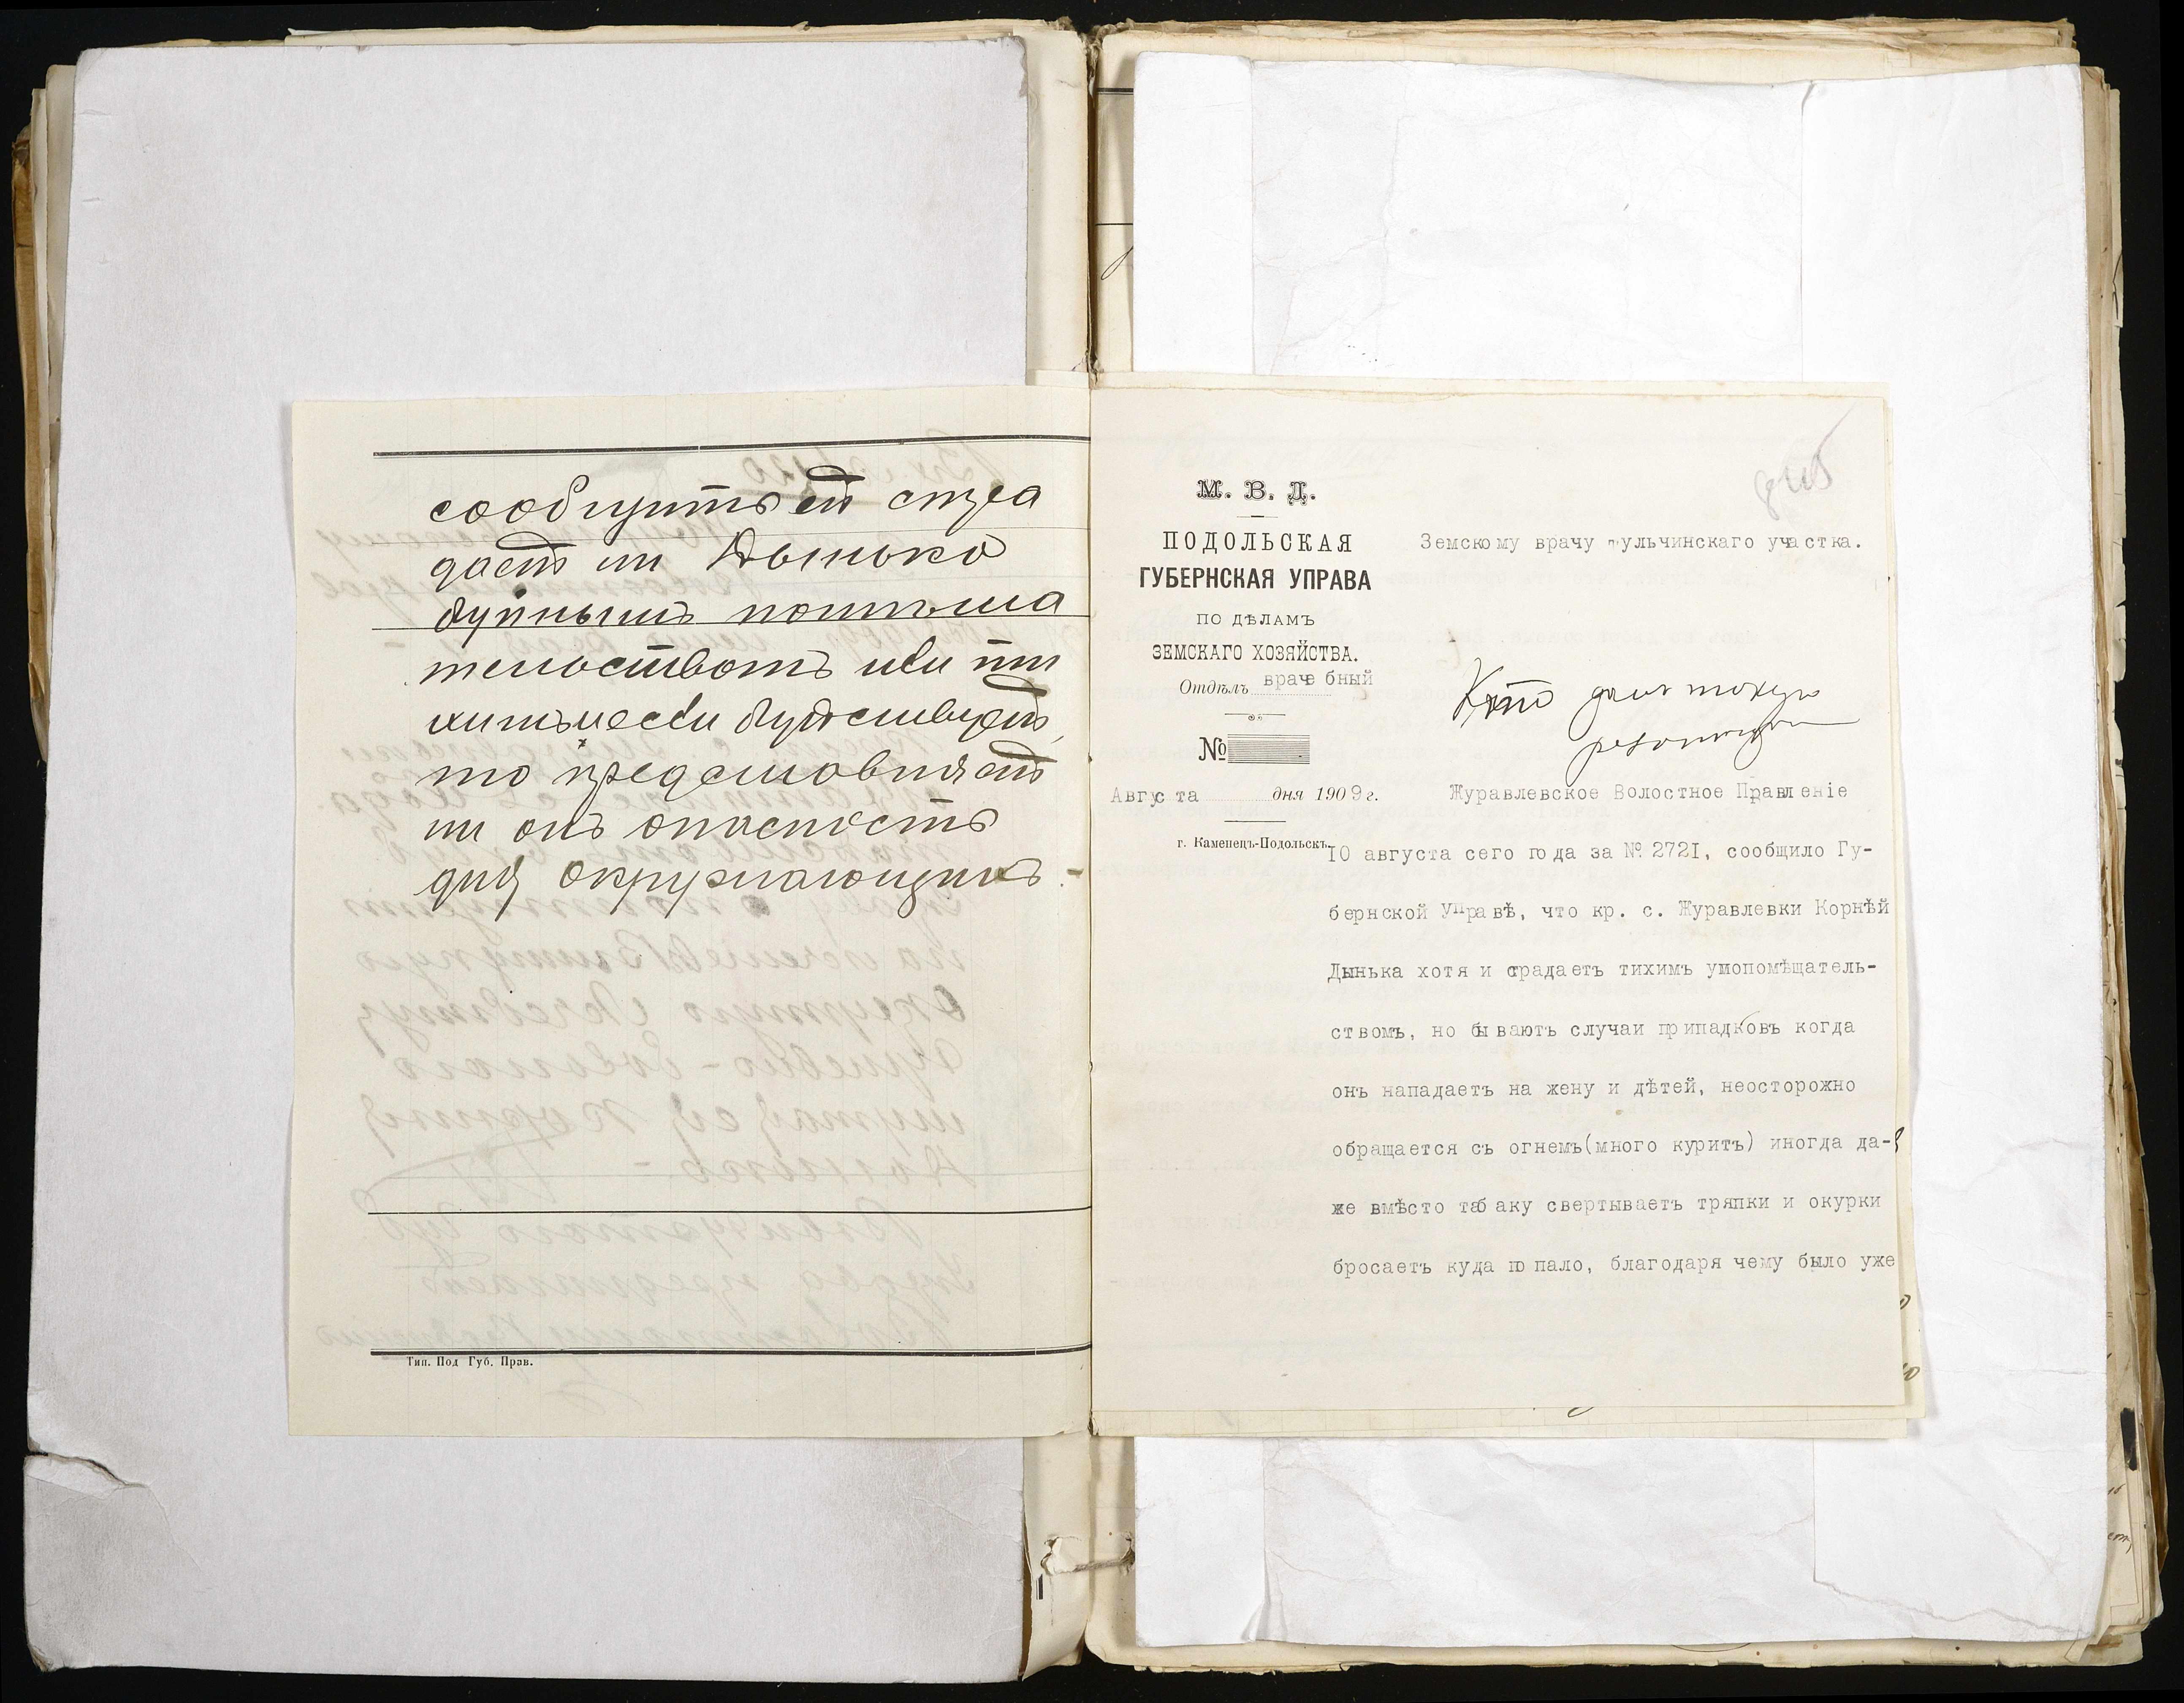 сообщить ей стра
даетъ ли Дынька
буйнымъ помѣша
тельствомъ или ти
химъ и если буйствуетъ,
то представляетъ
ли онъ опасность
для окружающихъ.-
Тип. Под Губ. Прав.
М. В. Д.
ПОДОЛЬСКАЯ
ГУБЕРНСКАЯ УПРАВА
ПО ДѢЛАМЪ
ЗЕМСКАГО ХОЗЯЙСТВА.
Отдѣлъ врачебный
№
Августа дня 1909 г.
г. Каменецъ-Подольскъ.
Земскому врачу тульчинскаго участка.
Кто далъ такую
резолюцію
Журавлевское Волостное Правленіе
10 августа сего года за № 2721, сообщило Гу-
бернской Управѣ, что кр. с. Журавлевки Корнѣй
Дынька хотя и страдаетъ тихимъ умопомѣщатель-
ствомъ, но бываютъ случаи припадковъ когда
онъ нападаетъ на жену и дѣтей, неосторожно
обращается съ огнемъ(много куритъ) иногда да-
же вмѣсто табаку свертываетъ тряпки и окурки
бросаетъ куда попало, благодаря чему было уже